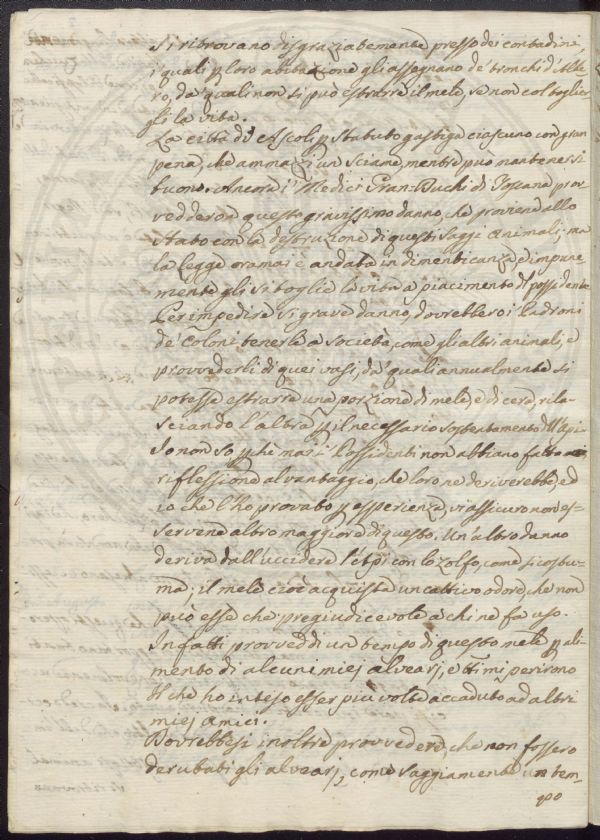 Si ritrovano disgraziatamente presso dei contadini,
i quali p loro abitazione gli assegnano de' tronchi d'Albe-
ro, da' quali non si può estrarre il mele, se non col toglier
gli la vita.
La città di Ascoli p Statuto gastiga ciascuno con gran
pena, che ammazzi un sciame, mentre può mantenersi
buono. Ancora i Medici Gran-Duchi di Toscana prov-
vedderon questo gravissimo danno, che proviene allo
Stato con la destruzione di questi saggi animali; ma
la Legge oramai è andata in dimenticanza, e impune
mente gli si toglie la vita a piacimento del possidente
Per impedire sì grave danno, dovrebbero i Padroni
de' Coloni tenerle a società, come gli altri animali, e
provvederli di quei vasi, da' quali annualmente si
potesse estrarre una porzione di mele, e di cera, rila-
sciando l'altra p il necessario sostentamento dell'Api
Io non so, pche mai i Possidenti non abbiano fatto
riflessione al vantaggio, che loro ne deriverebbe, ed
io che l'ho provato p esperienza, vi assicuro non es-
servene altro maggiore di questo. Un'altro danno
deriva dall'uccidere l'Api con lo zolfo, come si costu-
ma; il mele cioè acquista un cattivo odore, che non
può esse che pregiudicevole a chi ne fa uso.
Infatti provveddi un tempo di questo mele p ali
mento di alcuni miej alvearj, e tti mi perirono
Il che ho inteso esser più volte accaduto ad altri
miej amici.
Dovrebbesi inoltre provvedere, che non fossero
derubati gli alvearj, come saggiamente un tem-
po